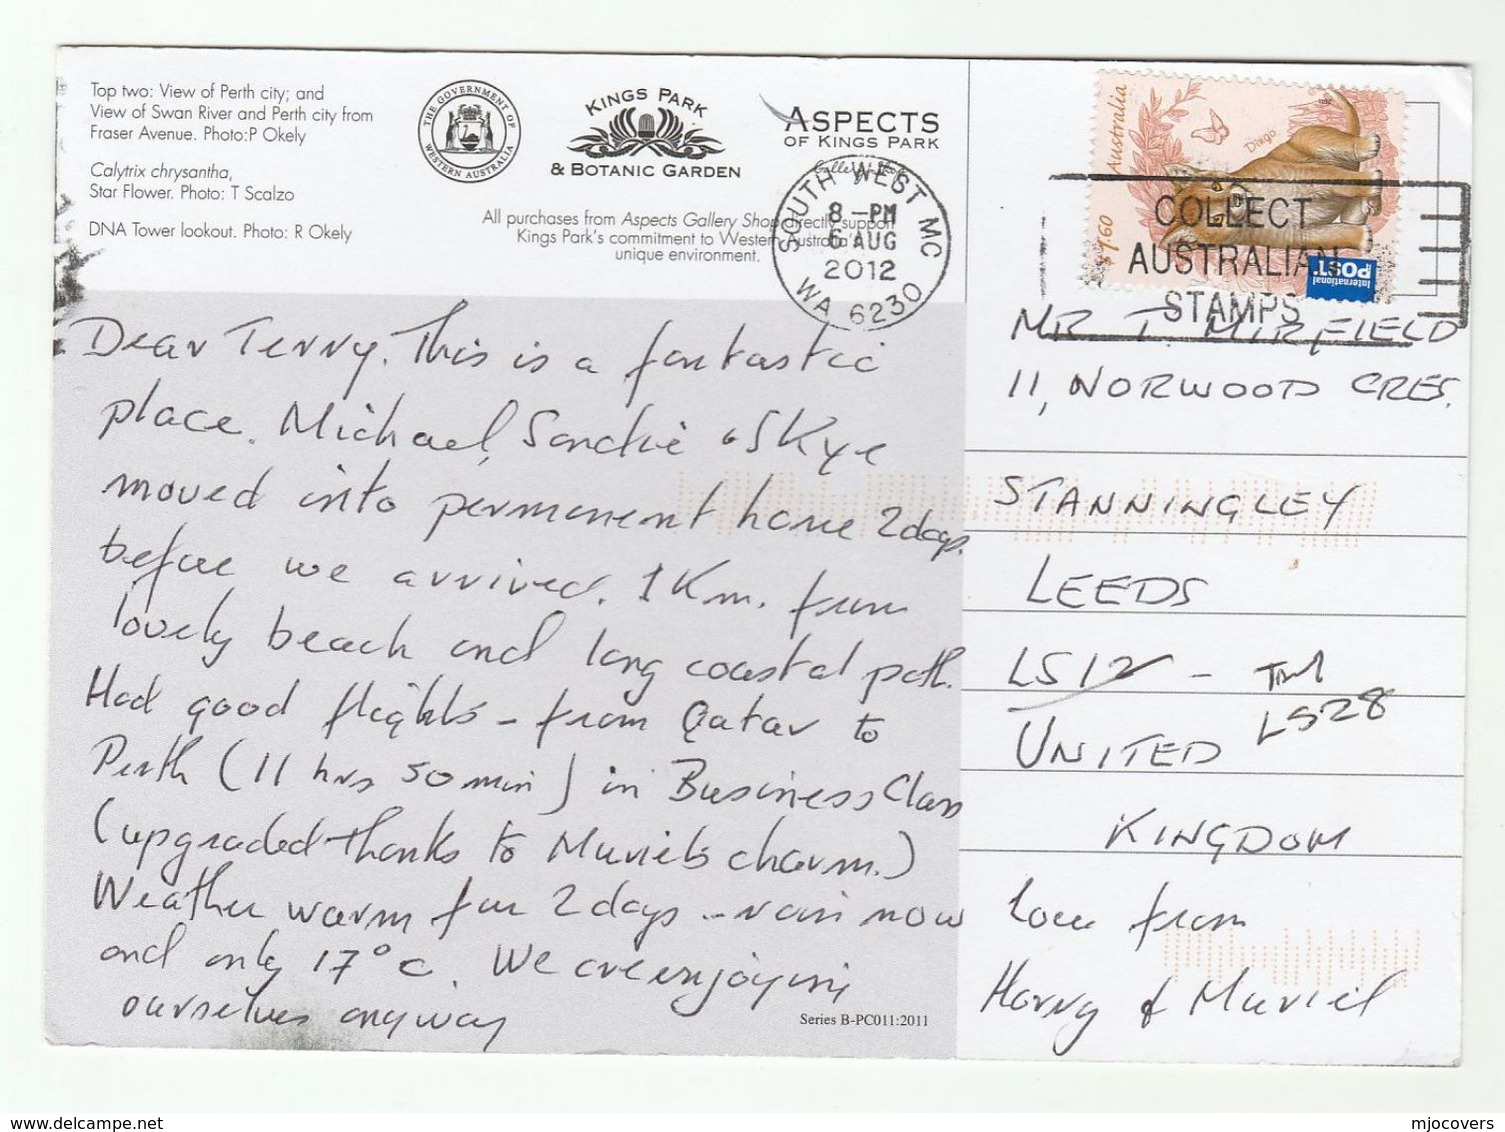 Top two: View of Perth city; and
View of Swan River and Perth city from
Fraser Avenue. Photo:P Okely
Calytrix chrysantha,
Star Flower. Photo: T Scalzo
DNA Tower lookout. Photo: R Okely
THE GOVERNMENT OF
WESTERN AUSTRALIA
KINGS PARK
& BOTANIC GARDEN
ASPECTS
OF KINGS PARK
All purchases from Aspects Gallery Shop directly support
Kings Park's commitment to Western Australia's
unique environment.
SOUTH WEST MC
8 -PM
6 AUG
2012
WA 6230
Australia
Diago
$1.60
International
POST
COLLECT
AUSTRALIAN
STAMPS
Dear Terry. This is a fantastic
place. Michael, Sandie & Skye
moved into permanent home 2 days
before we arrived. 1 Km. from
lovely beach and long coastal path.
Had good flights - from Qatar to
Perth (11 hrs 50 min) in Business Class
(upgraded thanks to Muriel's charm.)
Weather warm for 2 days - rain now
and only 17°C. We are enjoying
ourselves anyway
Series B-PC011:2011
MR T. MIRFIELD
11, NORWOOD CRES.
STANNINGLEY
LEEDS
LS12 -
LS28
UNITED
KINGDOM
Love from
Harry & Muriel
mjocovers